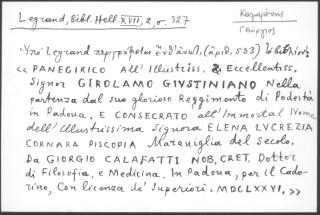 Legrand, Bibl. Hell. XVII, 2, σ. 327
Καλαφάτης
Γεώργιος
Ὑπὸ Legrand περιγράφεται ἐνθ' ἀνωτ. (ἀριθ. 533) τὸ βιβλίον:
« PANEGIRICO All' Illustriss. & Eccellentiss.
Signor GIROLAMO GIVSTINIANO Nella
partenza dal suo glorioso Reggimento di Podestà
in Padoua. E CONSECRATO all' Immortal Nome
dell' Illustrissima Signora ELENA LVCREZIA
CORNARA PISCOPIA Marauiglia del Secolo.
Da GIORGIO CALAFATTI NOB. CRET. Dottor
di Filosofia, e Medicina. In Padoua, per il Cado-
rino, Con licenza de' Superiori. MDCLXXVI. »